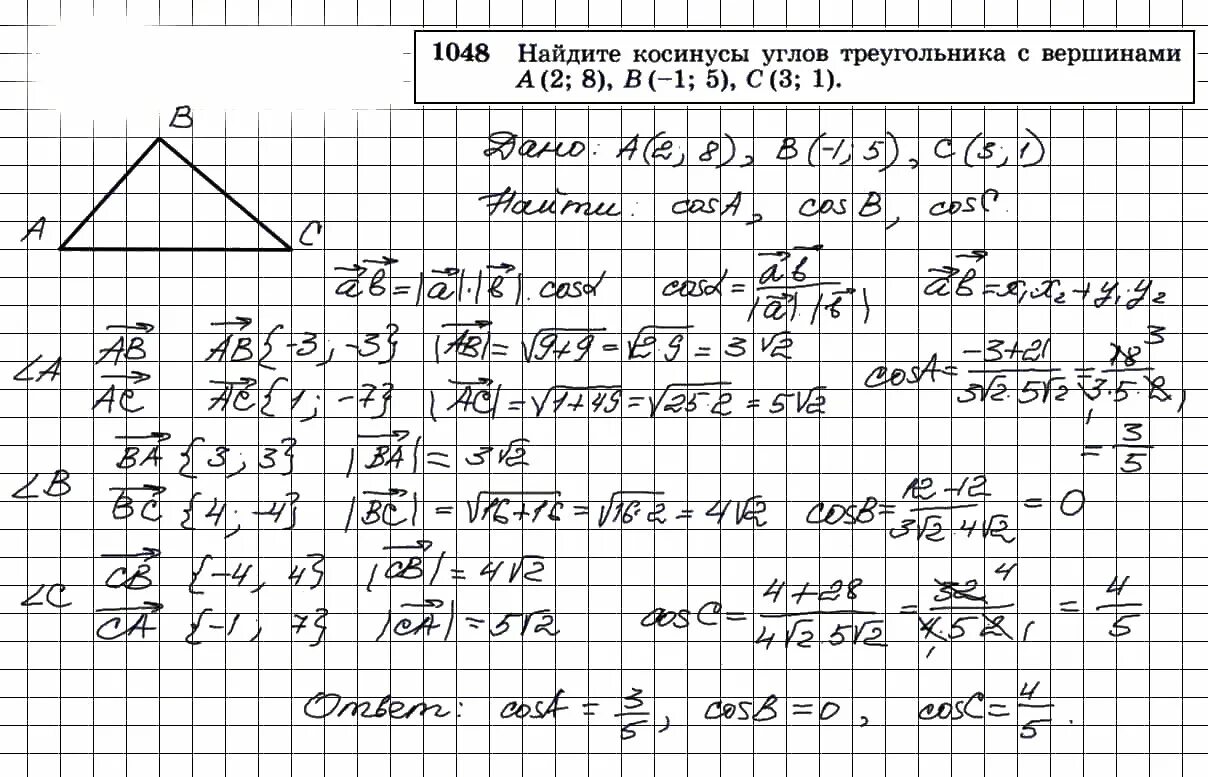 1048 Найдите косинусы углов треугольника с вершинами
A (2; 8), B (−1; 5), C (3; 1).
B
A
C
Дано: A(2; 8), B(-1; 5), C(3; 1)
Найти: cosA, cosB, cosC.
ab = |a|·|b|·cosα cosα = ab / |a|·|b| ab = x₁·x₂ + y₁·y₂
∠A
AB AB{-3; -3} |AB| = √9+9 = √2·9 = 3√2
AC AC{1; -7} |AC| = √1+49 = √25·2 = 5√2
cosA = -3+21 / 3√2·5√2 = 18 3 / 3·5·2 1 1
= 3/5
∠B
BA {3; 3} |BA| = 3√2
BC {4; -4} |BC| = √16+16 = √16·2 = 4√2
cosB = 12-12 / 3√2·4√2 = 0
∠C
CB {-4, 4} |CB| = 4√2
CA {-1; 7} |CA| = 5√2
cosC = 4+28 / 4√2·5√2 = 32 4 / 4·5·2 1 1 = 4/5
Ответ: cosA = 3/5, cosB = 0, cosC = 4/5.